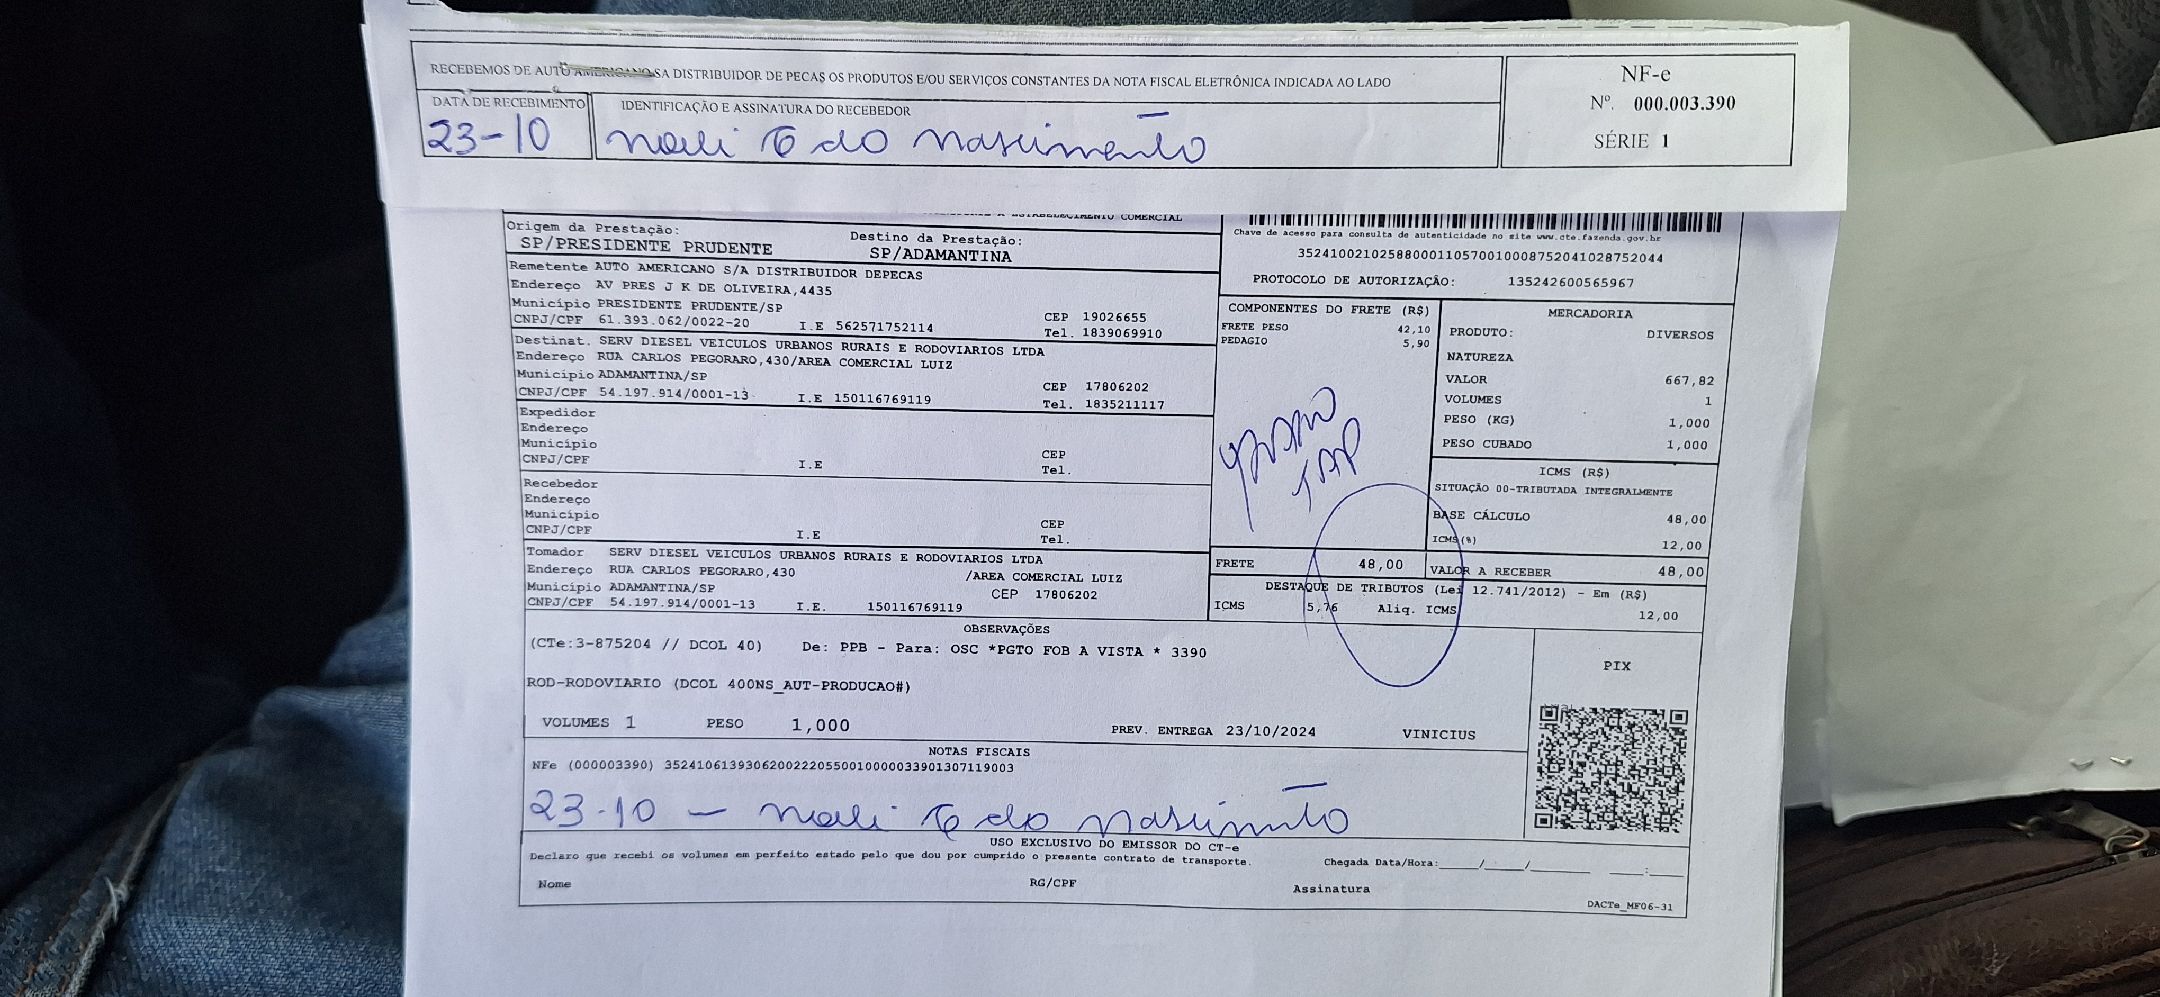 RECEBEMOS DE AUTO AMERICANO SA DISTRIBUIDOR DE PECAS OS PRODUTOS E/OU SERVIÇOS CONSTANTES DA NOTA FISCAL ELETRÔNICA INDICADA AO LADO
DATA DE RECEBIMENTO
23-10
IDENTIFICAÇÃO E ASSINATURA DO RECEBEDOR
do Nascimento
NF-e
Nº. 000.003.390
SÉRIE 1
ESTABELECIMENTO COMERCIAL
Origem da Prestação:
SP/PRESIDENTE PRUDENTE
Destino da Prestação:
SP/ADAMANTINA
Chave de acesso para consulta de autenticidade no site www.cte.fazenda.gov.br
35241002102588000110570010008752041028752044
PROTOCOLO DE AUTORIZAÇÃO: 135242600565967
Remetente AUTO AMERICANO S/A DISTRIBUIDOR DEPECAS
Endereço AV PRES J K DE OLIVEIRA,4435
Município PRESIDENTE PRUDENTE/SP CEP 19026655
CNPJ/CPF 61.393.062/0022-20 I.E 562571752114 Tel. 1839069910
Destinat. SERV DIESEL VEICULOS URBANOS RURAIS E RODOVIARIOS LTDA
Endereço RUA CARLOS PEGORARO,430/AREA COMERCIAL LUIZ
Município ADAMANTINA/SP CEP 17806202
CNPJ/CPF 54.197.914/0001-13 I.E 150116769119 Tel. 1835211117
Expedidor
Endereço
Município CEP
CNPJ/CPF I.E Tel.
Recebedor
Endereço
Município CEP
CNPJ/CPF I.E Tel.
Tomador SERV DIESEL VEICULOS URBANOS RURAIS E RODOVIARIOS LTDA
Endereço RUA CARLOS PEGORARO,430 /AREA COMERCIAL LUIZ
Município ADAMANTINA/SP CEP 17806202
CNPJ/CPF 54.197.914/0001-13 I.E. 150116769119
COMPONENTES DO FRETE (R$)
FRETE PESO 42,10
PEDAGIO 5,90
FRETE 48,00
MERCADORIA
PRODUTO: DIVERSOS
NATUREZA
VALOR 667,82
VOLUMES 1
PESO (KG) 1,000
PESO CUBADO 1,000
ICMS (R$)
SITUAÇÃO 00-TRIBUTADA INTEGRALMENTE
BASE CÁLCULO 48,00
ICMS(%) 12,00
VALOR A RECEBER 48,00
DESTAQUE DE TRIBUTOS (Lei 12.741/2012) - Em (R$)
ICMS 5,76 Aliq. ICMS 12,00
OBSERVAÇÕES
(CTe:3-875204 // DCOL 40) De: PPB - Para: OSC *PGTO FOB A VISTA * 3390
ROD-RODOVIARIO (DCOL 400NS_AUT-PRODUCAO#)
VOLUMES 1 PESO 1,000 PREV. ENTREGA 23/10/2024 VINICIUS
PIX
NOTAS FISCAIS
NFe (000003390) 35241061393062002220550010000033901307119003
23-10 - do Nascimento
USO EXCLUSIVO DO EMISSOR DO CT-e
Declaro que recebi os volumes em perfeito estado pelo que dou por cumprido o presente contrato de transporte. Chegada Data/Hora:____/____/______ ____:____
Nome RG/CPF Assinatura
DACTe_MF06-31